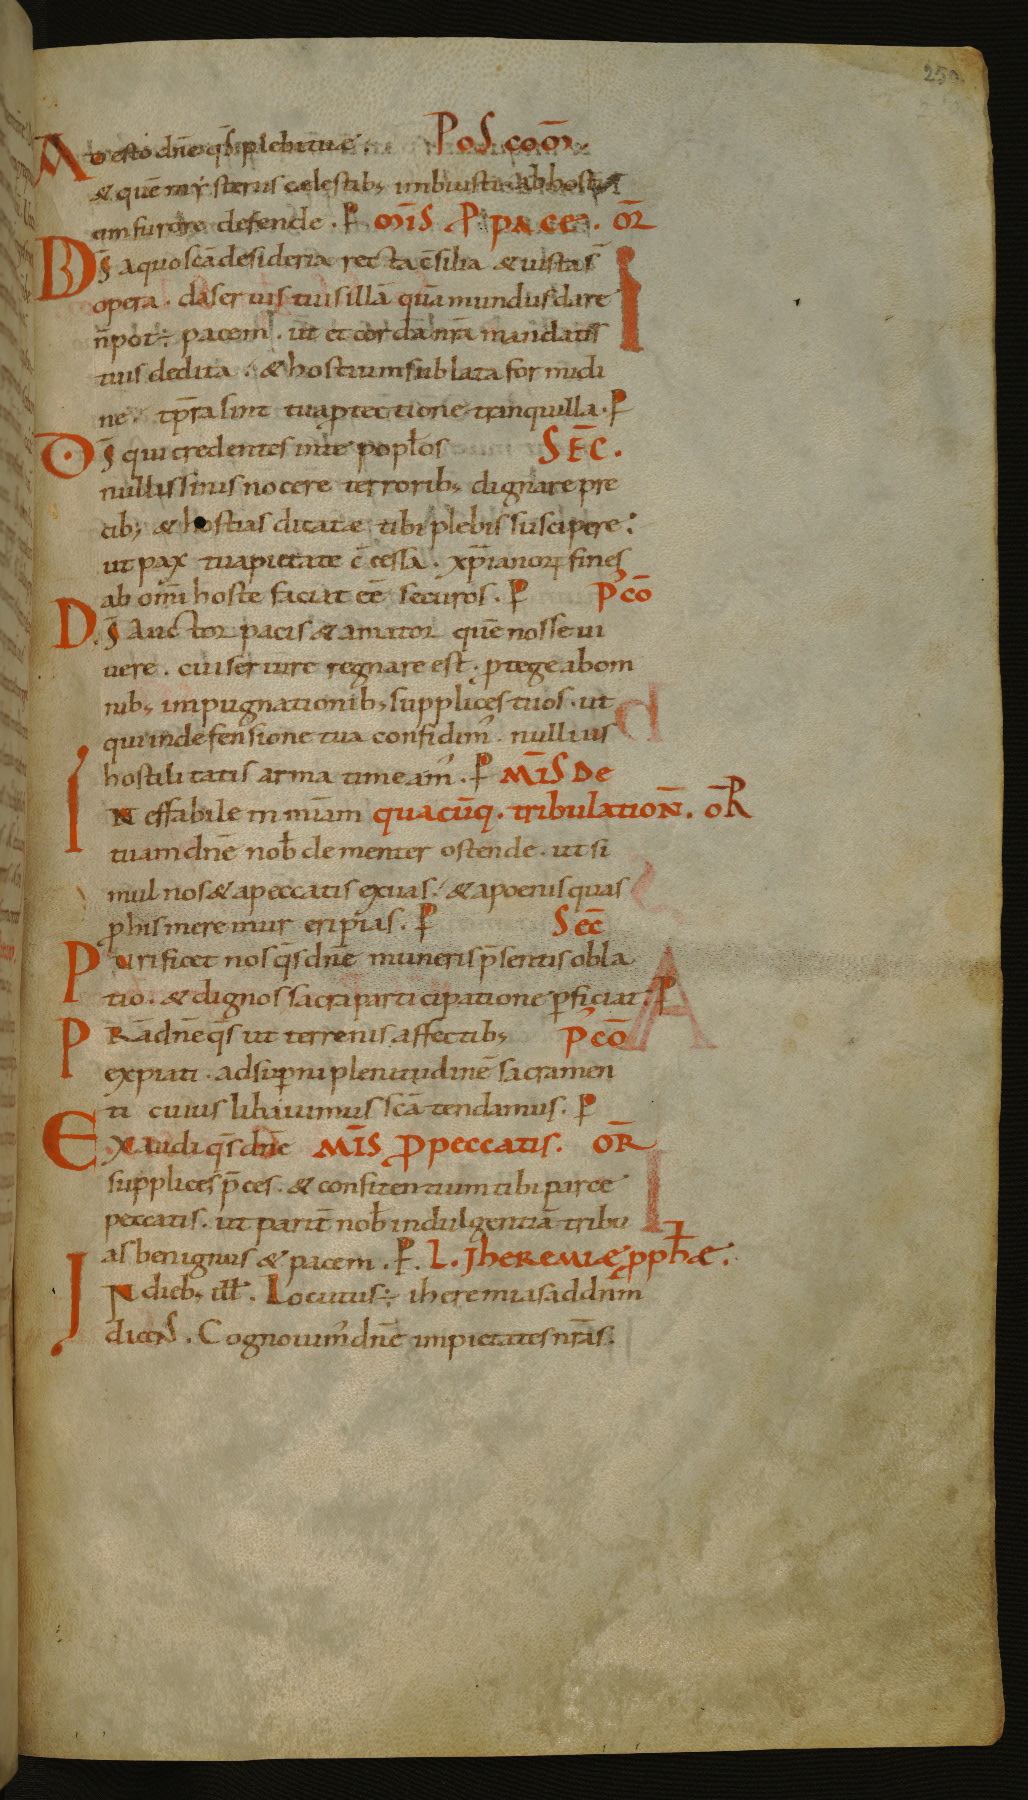 250
Adesto dn̄e qs̄ plebi tuae. Pos com̄.
& quē mysteriis celestib; imbuisti ab hosti
um furore defende. P mis̄ P pace. or̄
Ds̄ a quo scā desideria recta c̄silia & iusta s̄
opera. da seruis tuis illā quā mundus dare
n̄ pot÷ pacem. ut et corda nr̄a mandatis
tuis dedita. & hostium sublata formidi
ne. tp̄ra sint tua ptectione tranquilla. P
Ds̄ qui credentes in te poplos Sec̄.
nullis sinis nocere terrorib; dignare pre
cib; & hostias dicatae tibi plebis suscipere:
ut pax tua pietate c̄cessa. xp̄ianoꝝ fines
ab om̄i hoste faciat eē securos. P Pcō
Ds̄ Auctor pacis & amator quē nosse ui
uere. cui seruire regnare est. ptege ab om
nib; impugnationib; supplices tuos. ut
qui in defensione tua confidim'. nullius
hostilitatis arma timeam'. P Mis̄ De
Ineffabilem miam̄ quacūq. tribulation̄. or̄
tuam dn̄e nob̄ clementer ostende. ut si
mul nos & a peccatis exuas. & a poenis quas
p his meremur eripias. P Sec̄
Purificet nos qs̄ dn̄e muneris p̄sentis obla
tio. & dignos sacra participatione pficiat. P
Prā dn̄e qs̄ ut terrenis affectib; Pcō
expiati. ad supni plenitudinē sacramen
ti cuius libauimus scā tendamus. P
Exaudi qs̄ dn̄e Mis̄ P peccatis. or̄
supplices p̄ces. & confitentium tibi parce
peccatis. ut parit̄ nob̄ indulgentiā tribu
as benignus & pacem. P. L. Jheremiae pph̄ae.
In dieb; ill̄. Locutus÷ iheremias ad dnm
dicens. Cognouim' dn̄e impietates nr̄as.